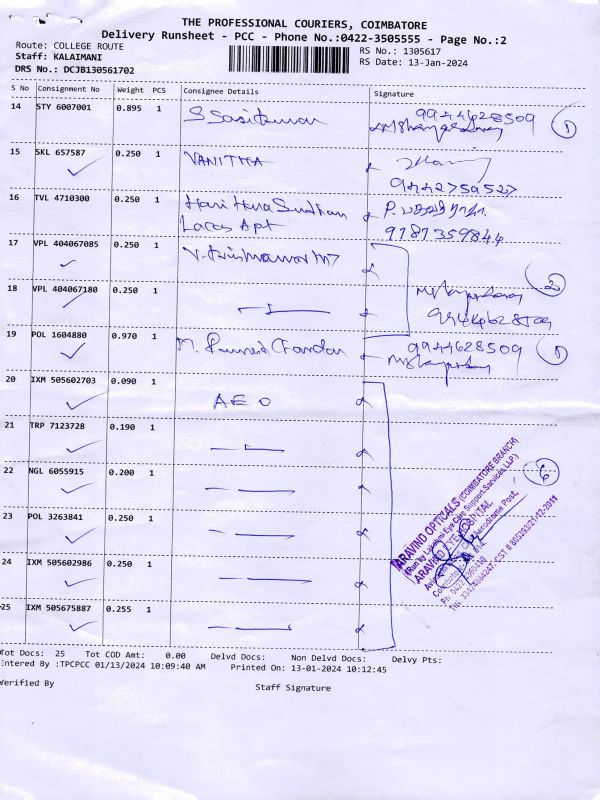 THE PROFESSIONAL COURIERS, COIMBATORE
Delivery Runsheet - PCC - Phone No.:0422-3505555 - Page No.:2
Route: COLLEGE ROUTE
Staff: KALAIMANI
DRS No.: DCJB130561702
RS No.: 1305617
RS Date: 13-Jan-2024
S No Consignment No Weight PCS Consignee Details Signature
14 STY 6007001 0.895 1 S Sasikumar 9944628509 1
15 SKL 657587 0.250 1 VANITHA 9442759527
16 TVL 4710300 0.250 1 Hari Hara Sudhan
Lacas Apt 9787359844
17 VPL 404067085 0.250 1
18 VPL 404067180 0.250 1 9944628509 2
19 POL 1604880 0.970 1 9944628509 1
20 IXM 505602703 0.090 1 AEO
21 TRP 7123728 0.190 1
22 NGL 6055915 0.200 1 6
23 POL 3263841 0.250 1
24 IXM 505602986 0.250 1
25 IXM 505675887 0.255 1
ARAVIND OPTICALS (COIMBATORE BRANCH)
(Run by Lakshmi Eye Care Support Services LLP)
ARAVIND EYE HOSPITAL
Aerodrome Post,
Tot Docs: 25 Tot COD Amt: 0.00 Delvd Docs: Non Delvd Docs: Delvy Pts:
Entered By :TPCPCC 01/13/2024 10:09:40 AM Printed On: 13-01-2024 10:12:45
Verified By Staff Signature